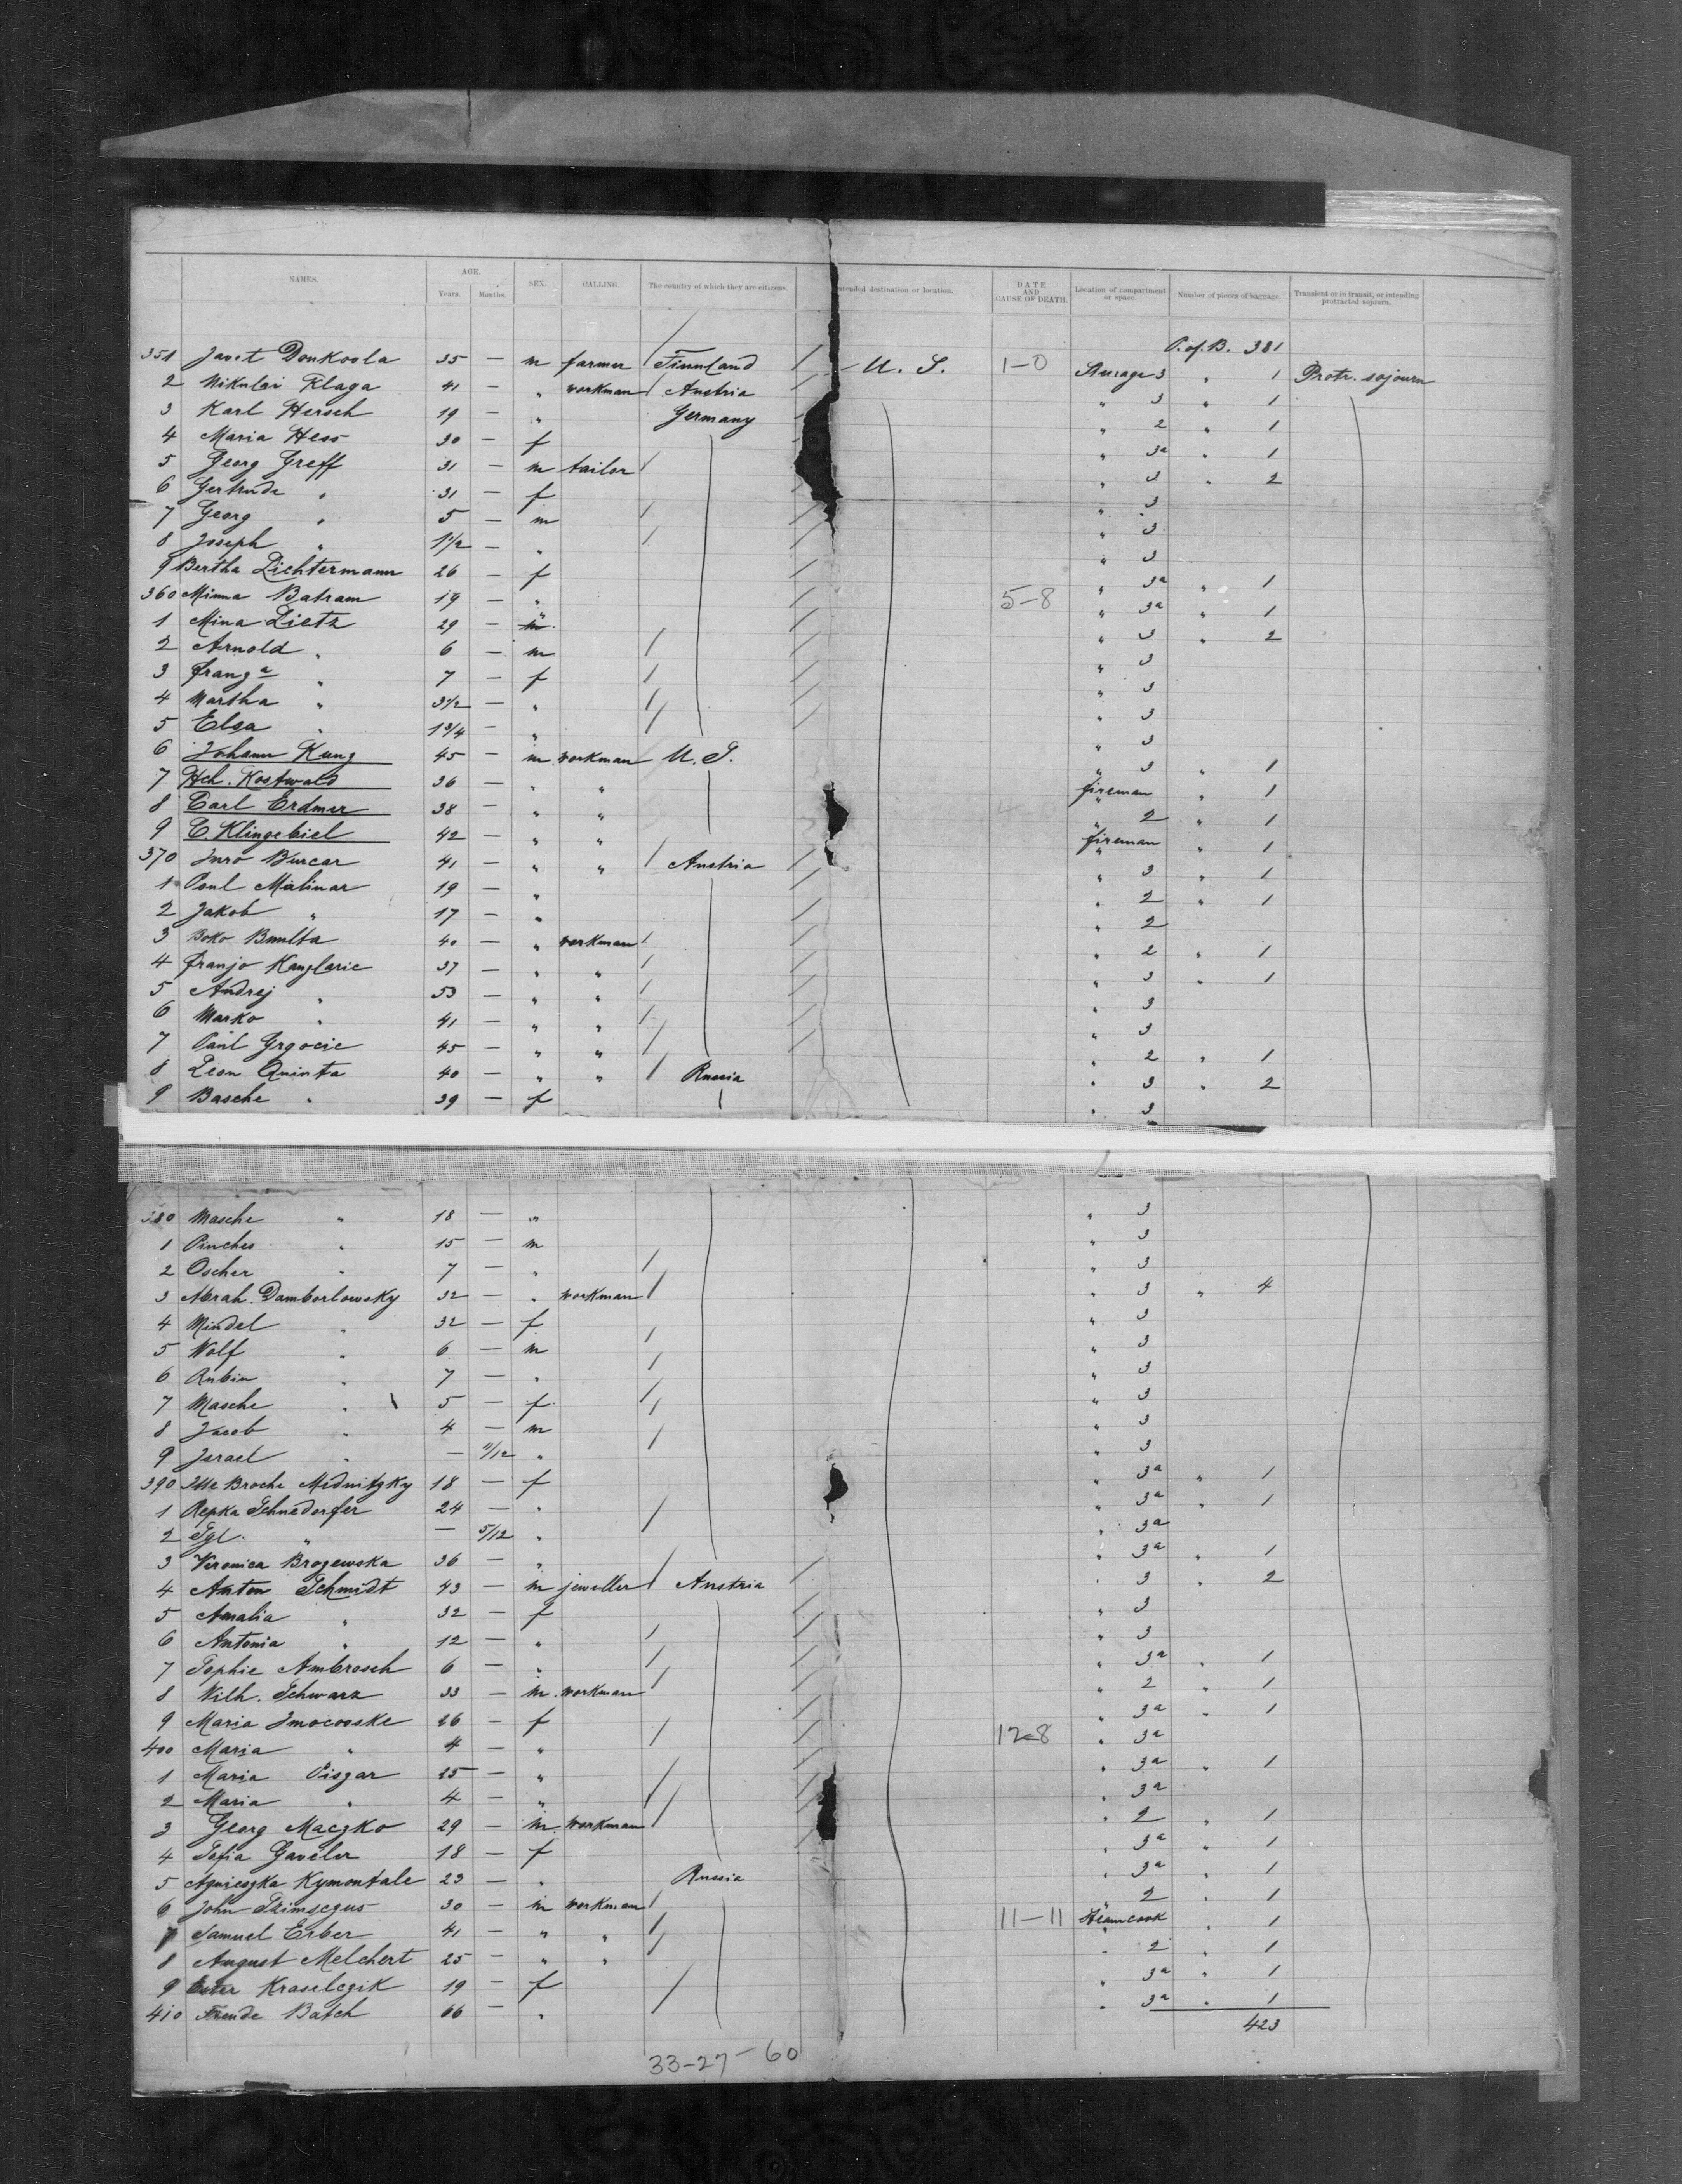 NAMES. AGE. Years. Months. SEX. CALLING. The country of which they are citizens. Intended destination or location. DATE AND CAUSE OF DEATH Location of compartment or space. Number of pieces of baggage. Transient or in transit, or intending protracted sojourn.
P. of B. 381
351 Javet Donkoola 35 — m farmer Finnland U. S. 1-0 Steerage 3 " 1 Protr. sojourn
2 Nikulai Klaga 41 — " workman Austria " 3 " 1
3 Karl Hersch 19 — " Germany " 2 " 1
4 Maria Hess 30 — f " 3a " 1
5 Georg Greff 31 — m tailor " 3 " 2
6 Gertrude " 31 — f " 3
7 Georg " 5 — m " 3
8 Joseph " 1 1/2 — " " 3
9 Bertha Lichtermann 26 — f " 3a " 1
360 Minna Batram 19 — " 5-8 " 3a " 1
1 Mina Lietz 29 — " " 3 " 2
2 Arnold " 6 — m " 3
3 Franz a " 7 — f " 3
4 Martha " 3 1/2 — " " 3
5 Elsa " 1 3/4 — " " 3
6 Johann Kung 45 — m workman U. S. " 3 " 1
7 Hch. Kostwald 36 — " " fireman " 1
8 Carl Erdmer 38 — " " 4 " 2 " 1
9 C. Klingebiel 42 — " " fireman " 1
370 Juro Burcar 41 — " " Austria " 3 " 1
1 Paul Malinar 19 — " " 2 " 1
2 Jakob " 17 — " " 2
3 Boko Bunlta 40 — " workman " 2 " 1
4 Franjo Kanzlaric 37 — " " " 3 " 1
5 Andrej " 53 — " " " 3
6 Marko " 41 — " " " 3
7 Paul Grgocic 45 — " " " 2 " 1
8 Leon Quinta 40 — " " Russia " 3 " 2
9 Basche " 39 — f " 3
380 Masche " 18 — " " 3
1 Pinches " 15 — m " 3
2 Oscher " 7 — " " 3
3 Abrah. Damborlowsky 32 — " workman " 3 " 4
4 Mindel " 32 — f " 3
5 Wolf " 6 — m " 3
6 Rubin " 7 — " " 3
7 Masche " 5 — f " 3
8 Jacob " 4 — m " 3
9 Israel " — 11/12 " " 3
390 Itte Broche Mednitzky 18 — f " 3a " 1
1 Repka Schnedorfer 24 — " " 3a " 1
2 Sgl. " — 5/12 " " 3a
3 Veronica Brozewska 36 — " " 3a " 1
4 Anton Schmidt 43 — m jeweller Austria " 3 " 2
5 Amalia " 32 — f " 3
6 Antonia " 12 — " " 3
7 Sophie Ambrosch 6 — " " 3a " 1
8 Wilh. Schwarz 33 — m workman " 2 " 1
9 Maria Imocooske 26 — f " 3a " 1
400 Maria " 4 — " 12-8 " 3a
1 Maria Piszar 25 — " " 3a " 1
2 Maria " 4 — " " 3a
3 Georg Maczko 29 — m workman " 2 " 1
4 Sofia Gaveler 18 — f " 3a " 1
5 Agnieszka Kymontale 23 — " Russia " 3a " 1
6 John 30 — m workman " 2 " 1
7 Samuel Erber 41 — " " 11-11 Steamcook " 1
8 August Melchert 25 — " " " 2 " 1
9 Ester Kraselczik 19 — f " 3a " 1
410 Freude Batch 66 — " " 3a " 1
423
33-27-60